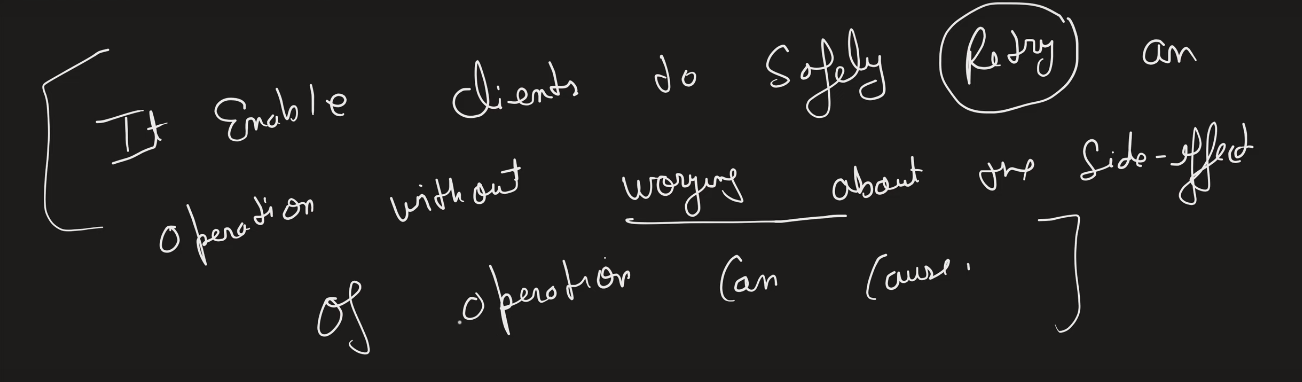 It Enable clients to safely Retry an
operation without worying about the Side-effect
of operation can cause.